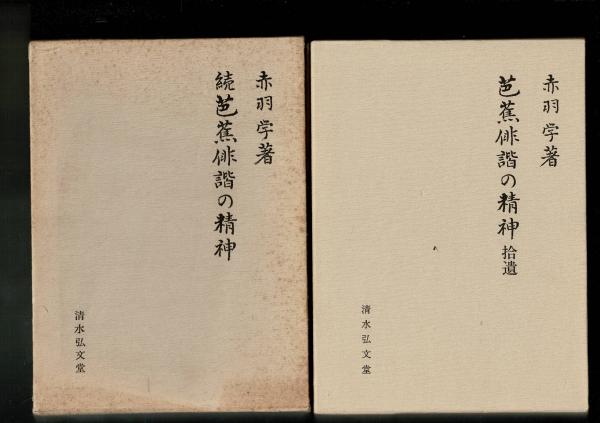 赤羽学著
続芭蕉俳諧の精神
清水弘文堂
赤羽学著
芭蕉俳諧の精神 拾遺
清水弘文堂